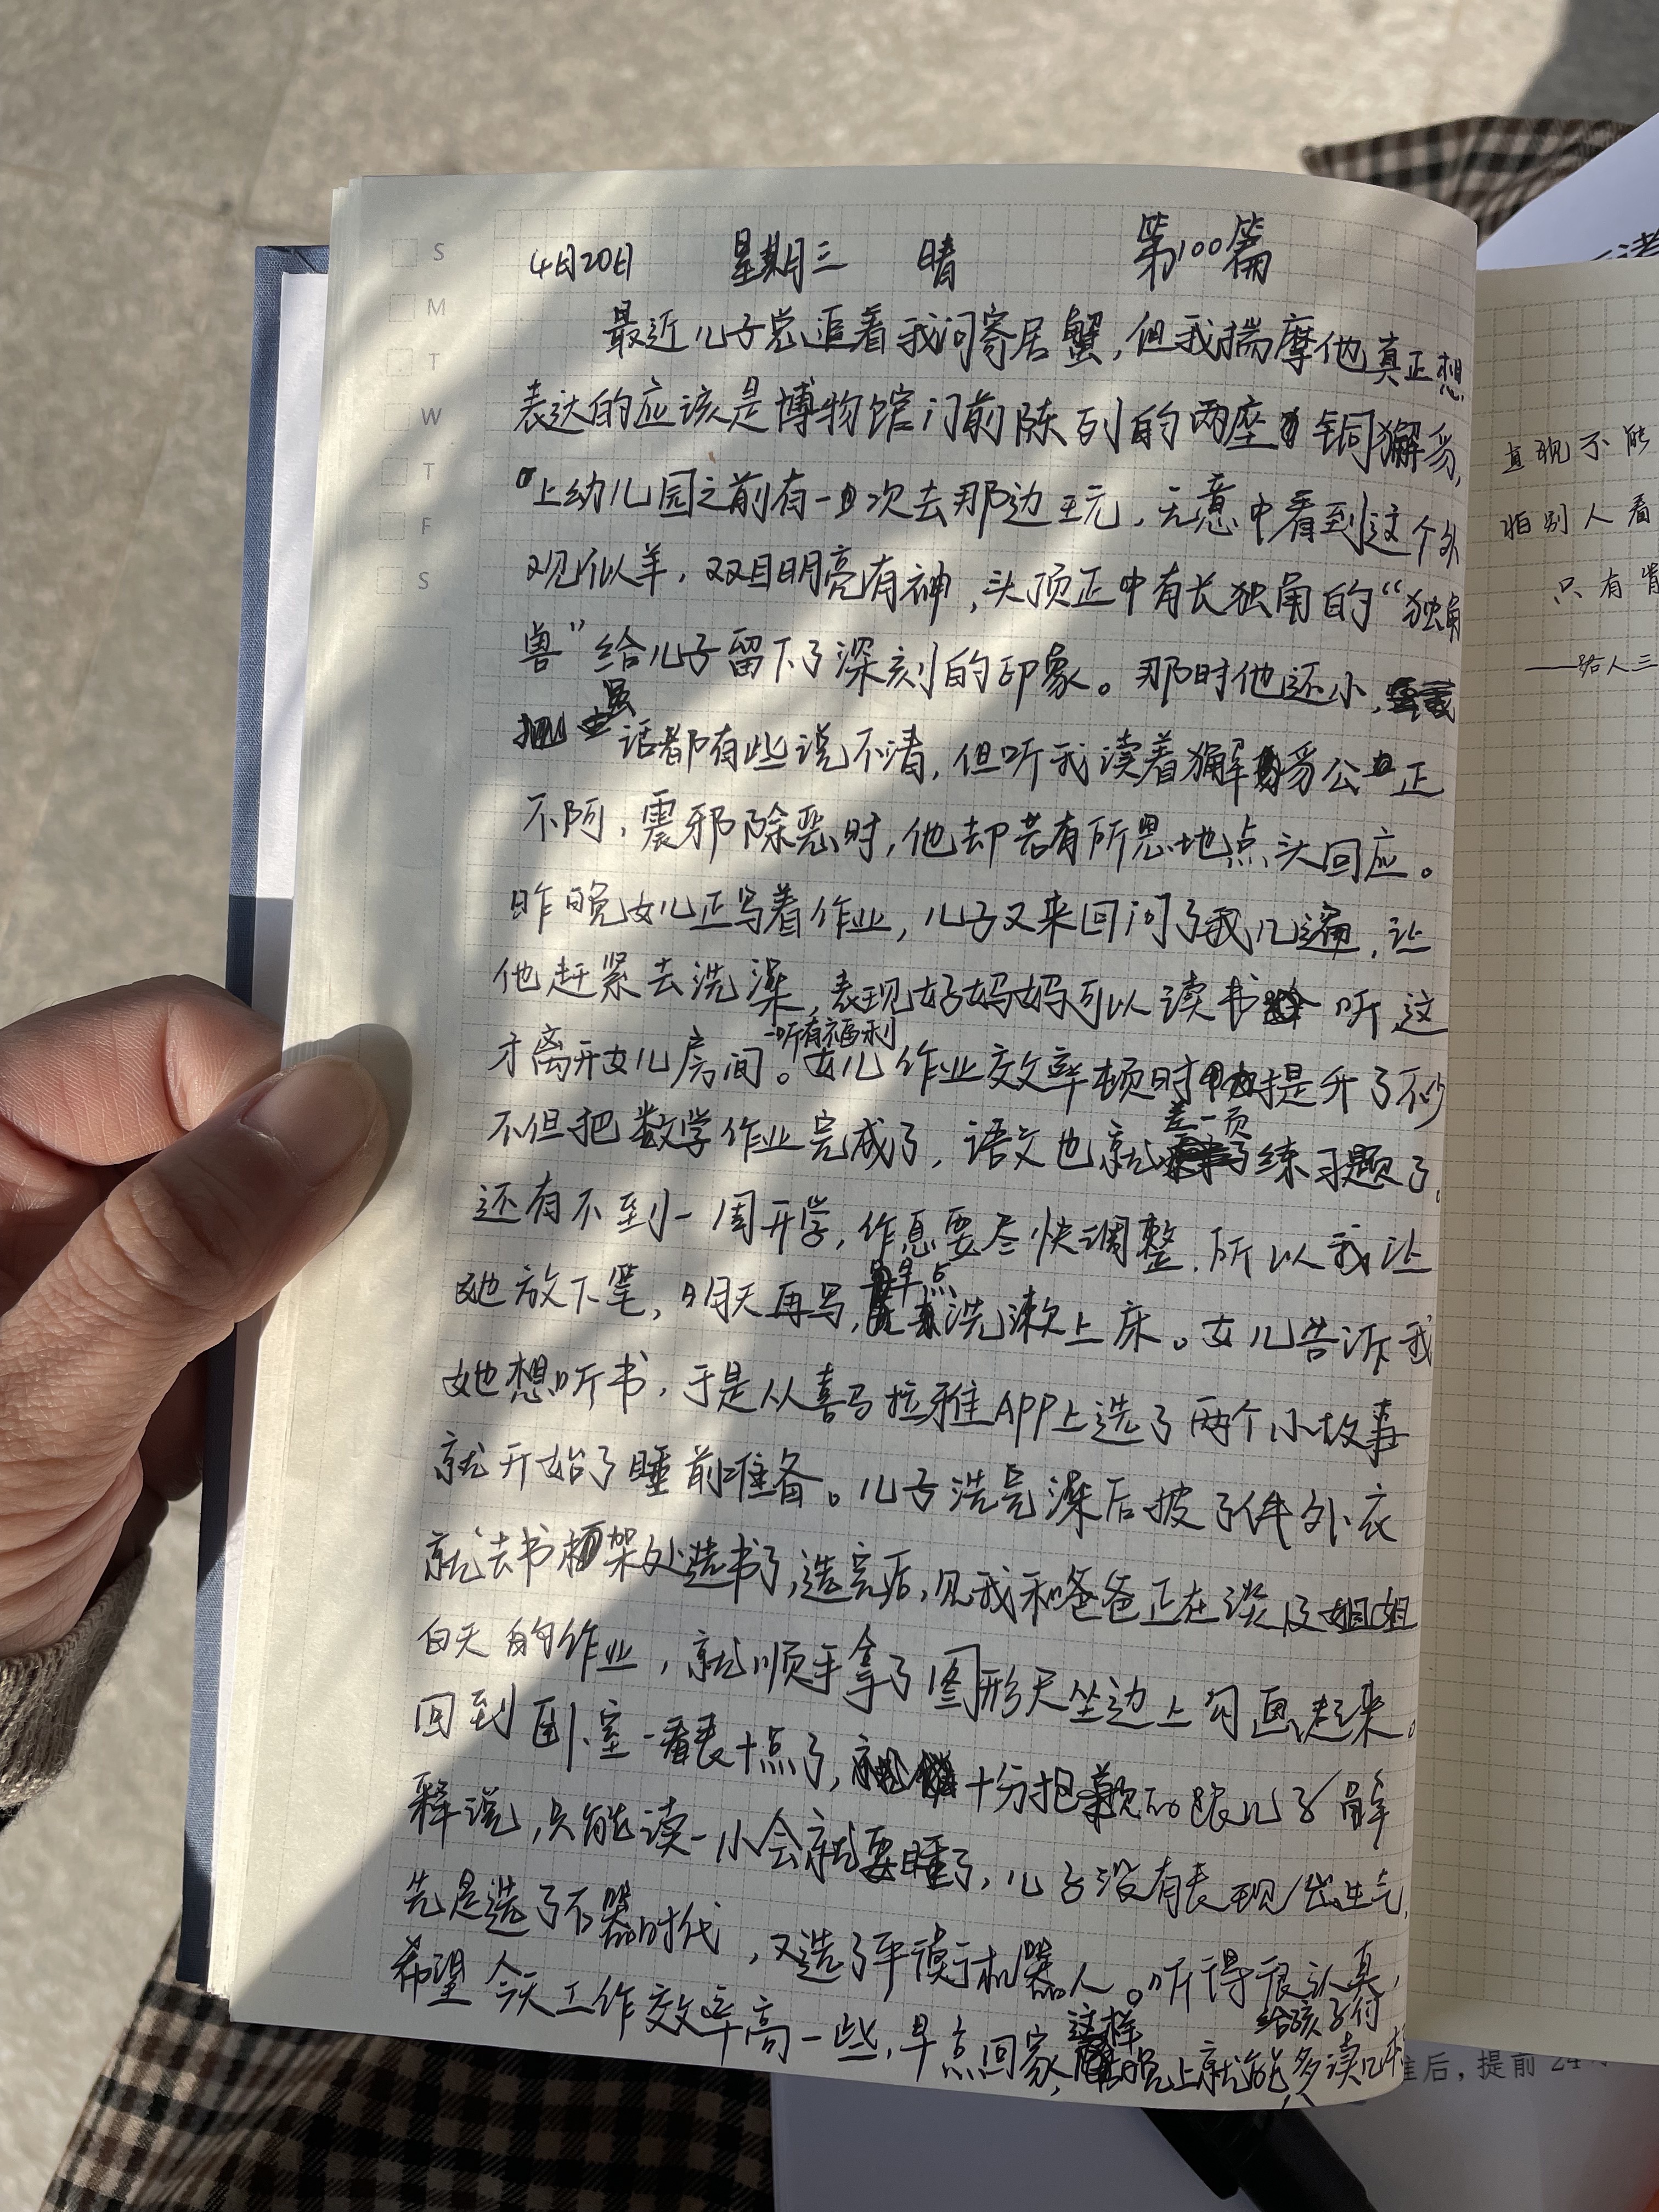 4月20日 星期三 晴 第100篇
最近儿子总追着我问寄居蟹,但我揣摩他真正想
表达的应该是博物馆门前陈列的两座铜獬豸,
上幼儿园之前有一次去那边玩,无意中看到这个外
观似羊,双目明亮有神,头顶正中有长独角的“独角
兽”给儿子留下了深刻的印象。那时他还小,
虽话都有些说不清,但听我读着獬豸公正
不阿,震邪除恶时,他却若有所思地点头回应。
昨晚女儿正写着作业,儿子又来回问了我几遍,让
他赶紧去洗澡,表现好妈妈可以读书听,这
才离开女儿房间。一听有福利女儿作业效率顿时提升了不少
不但把数学作业完成了,语文也就差一页练习题了。
还有不到一周开学,作息要尽快调整,所以我让
她放下笔,明天再写,早点洗漱上床。女儿告诉我
她想听书,于是从喜马拉雅APP上选了两个小故事
就开始了睡前准备。儿子洗完澡后披了件外衣
就去书架处选书了,选完后,见我和爸爸正在谈及姐姐
白天的作业,就顺手拿了图形尺坐边上勾画起来。
回到卧室一看表十点了,十分抱歉的跟儿子解
释说,只能读一小会就要睡了,儿子没有表现出生气,
先是选了石器时代,又选了平读于机器人。听得很认真,
希望今天工作效率高一些,早点回家,这样晚上就能给孩子们多读几本
直视不能
怕别人看
只有背
——路人三
后,提前24